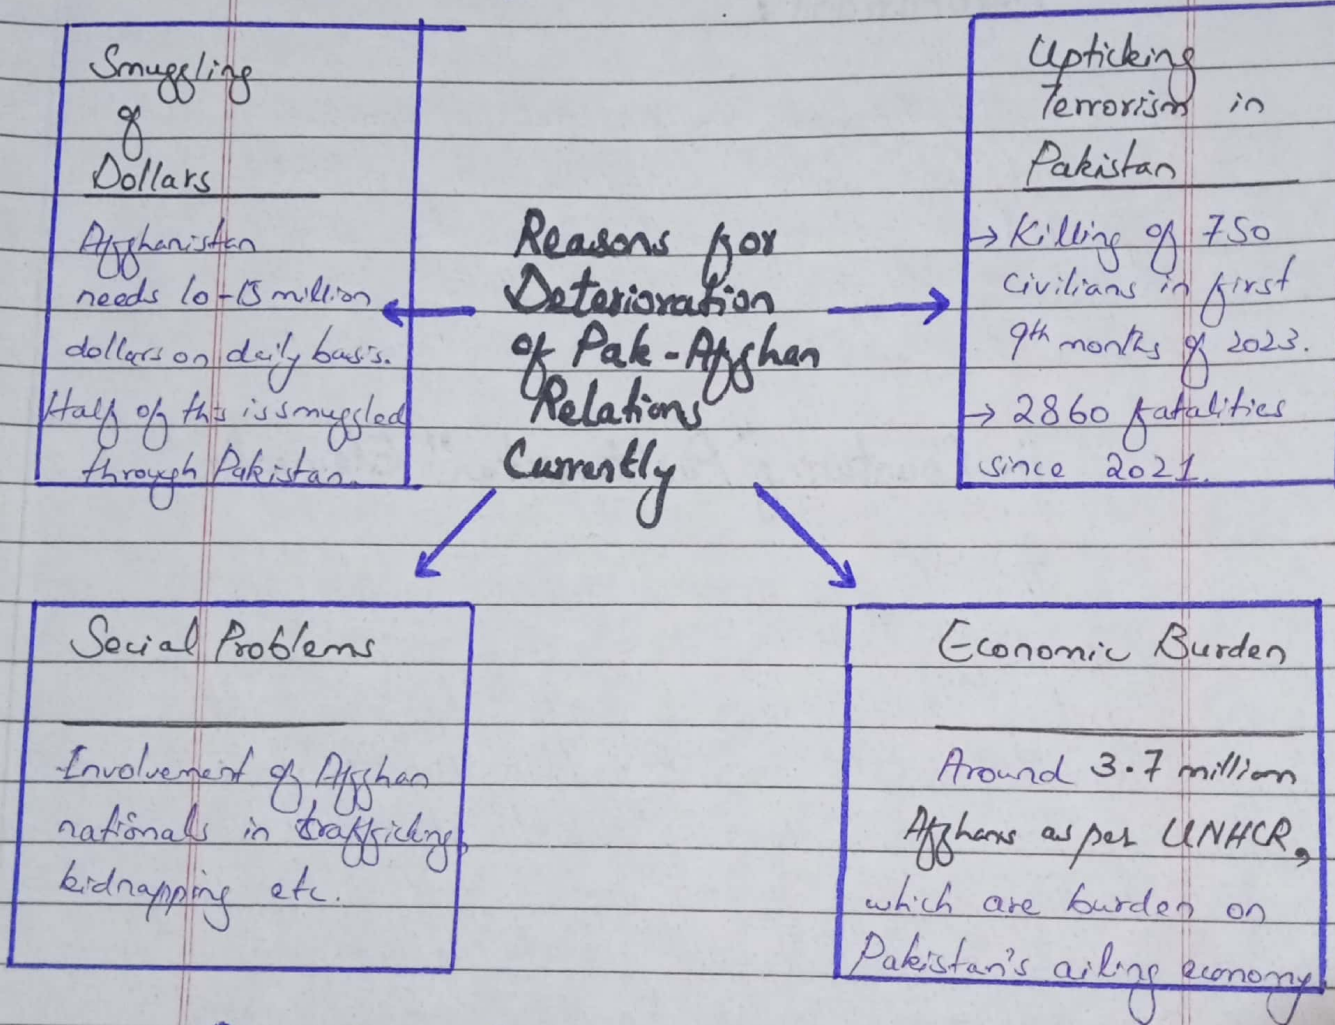 Smuggling
of
Dollars
Afghanistan
needs 10-15 million
dollars on daily basis.
Half of this is smuggled
through Pakistan.
Reasons for
Deterioration
of Pak-Afghan
Relations
Currently
Upticking
Terrorism in
Pakistan
→ Killing of 750
civilians in first
9th months of 2023.
→ 2860 fatalities
since 2021.
Social Problems
Involvement of Afghan
nationals in trafficking,
kidnapping etc.
Economic Burden
Around 3.7 million
Afghans as per UNHCR,
which are burden on
Pakistan's ailing economy